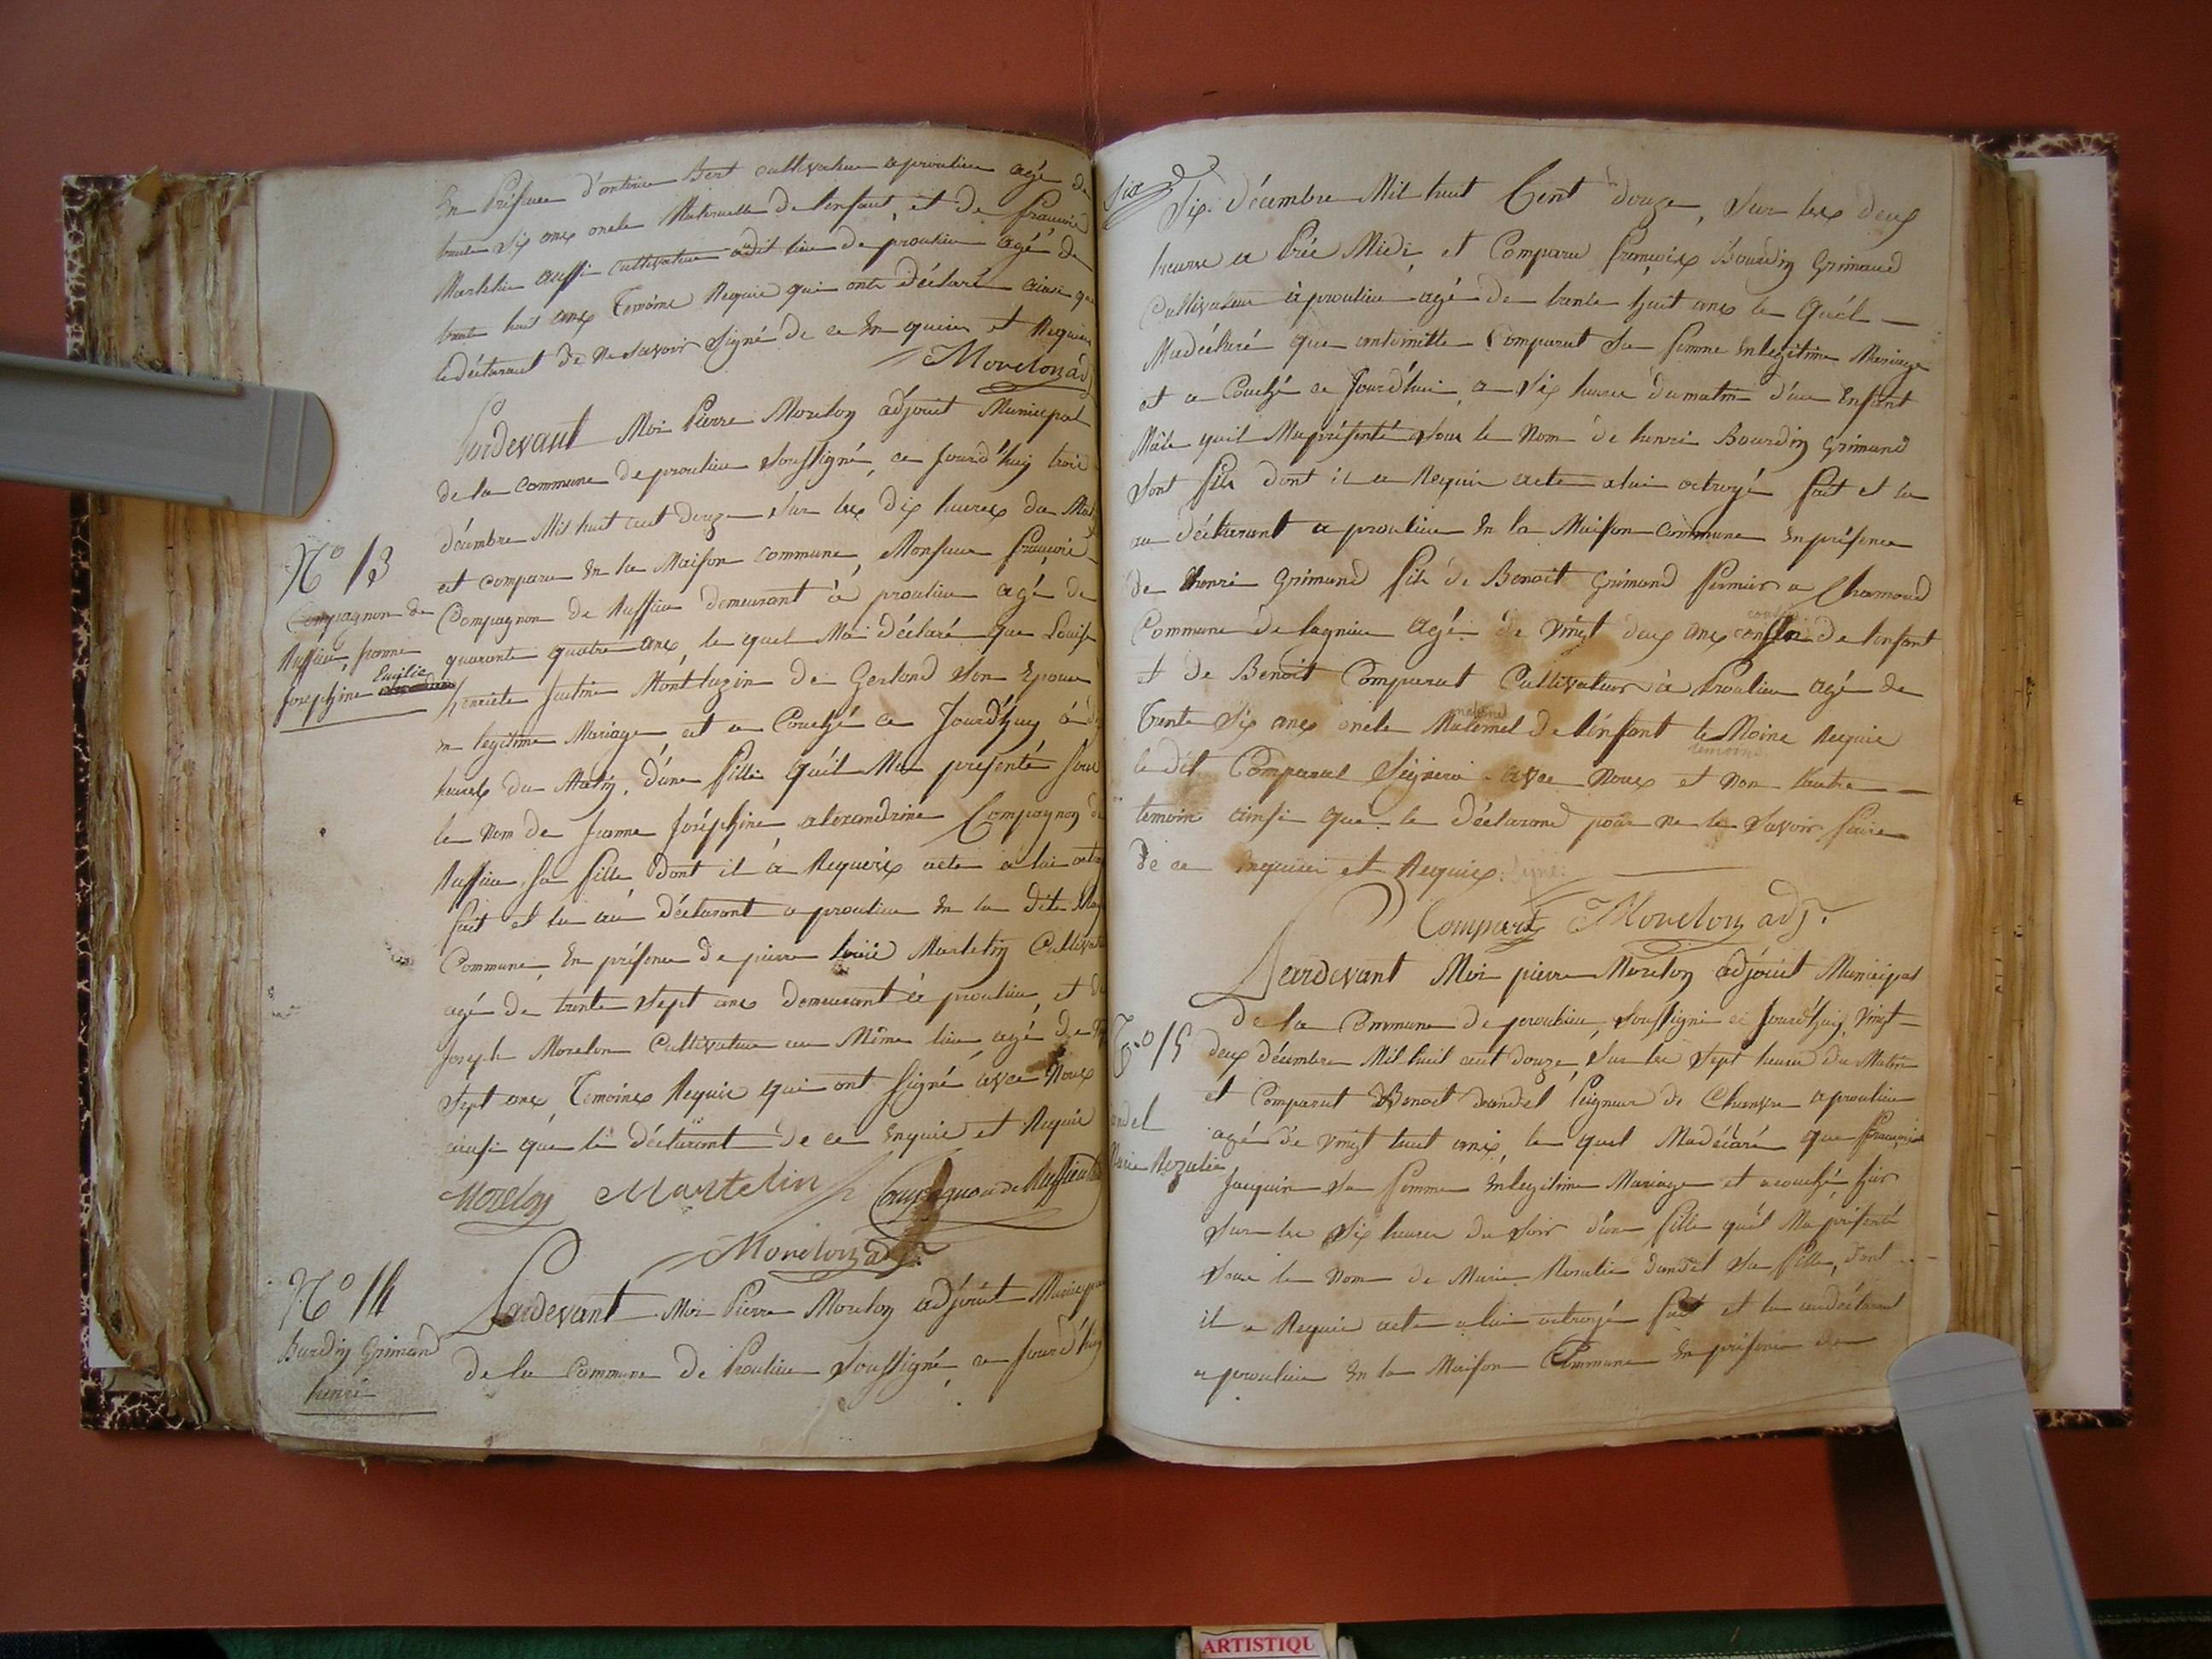 En Présence d'antoine Bert cultivateur a proulieu agé de
trente Six ans oncle Maternelle de lenfant, et de françois
Martelin aussi cultivateur audit lieu de proulieu agé de
trente huit ans Temoins Requis qui ont déclaré ainsi que
le déclarant de Ne Savoir Signé de ce En quis et Requis
Morelon adj
Pardevant Moi Pierre Morelon adjoint Municipal
de la Commune de proulieu Soussigné, ce Jourd'huy trois
décembre Mil huit cent douze Sur les Dix heures du Mat
N° 13
et comparu En la Maison Commune, Monsieur françois
Compagnon de
Compagnon de Ruffieu demeurant à proulieu agé de
Ruffieu, jeanne
quarante quatre ans, le quel Ma déclaré que Louise
Josephine Emilie
henriete Justine Montluzin de Gerland Son Epouse
en legitime Mariage est a Couché ce Jourd'huy à
heures du Matin, d'une fille quil Ma presenté sous
le Nom de Jeanne Joséphine alexandrine Compagnon de
Ruffieu, sa fille, Dont il à Requis acte à lui
fait et lu au Déclarant a proulieu En la Dite
Commune, En présence de pierre Martelin Cultivat
agé de trente Sept ans Demeurant à proulieu, et de
Joseph Morelon Cultivateur au Même lieu, agé de
Sept ans, Temoins Requis qui ont Signé avec Nous
ainsi que le déclarant de ce Enquis et Requis
Morelon Martelin Compagnon de Ruffieu
Morelon adj.
N° 14
Pardevant Moi Pierre Morelon adjoint
Burdin Grimaud
de la Commune de Proulieu Soussigné, ce Jourd'huy
henri
Six
Six décembre Mil huit Cent douze, Sur les deux
heures a Prés Midi, et Comparu françois Bourdin Grimaud
Cultivateur à proulieu agé de trente huit ans le Quel
Madéclaré que antoinette Comparat Sa femme En legitime Mariage
et a Couché ce Jourd'hui, a Six heures du matin d'un Enfant
Mâle quil Ma présenté Sous le Nom de henri Bourdin Grimaud
Sont fils dont il a Requis acte alui octroyé fait et lu
au déclarant a proulieu En la Maison Commune En présence
de henri Grimaud fils de Benoit Grimaud fermier a Chamoud
Commune de lagnieu Agé de Vingt deux ans cousin de l'enfant
et de Benoit Comparat Cultivateur à Proulieu agé de
Trente Six ans oncle Maternel de l'énfant Requis
le dit Comparat Signera avec Nous et Non l'autre
temoin ainsi que le Déclarand pour ne le Savoir faire
de ce Enquis et Requis.
Comparat Morelon adj.
Pardevant Moi pierre Morelon adjoint Municipal
de la Commune de proulieu, Soussigné ce Jourd'huy, Vingt
N° 15
deux décembre Mil huit cent douze, Sur les Sept heures du Matin
et Comparut Benoit dandel Peigneur de Chanvre a proulieu
andel
agé de Vingt huit ans, le quel Madéclaré que françoise
Marie Rozalie
Jacquin Sa femme En legitime Mariage et acouché hier
Sur les Six heures du Soir d'un fille quil Ma présenté
Sous le Nom de Marie Rosalie dandel Sa fille, Dont
il a Requis acte alui octroyé fait et lu au déclarant
a proulieu En la Maison Commune En présence de
ARTISTIQU